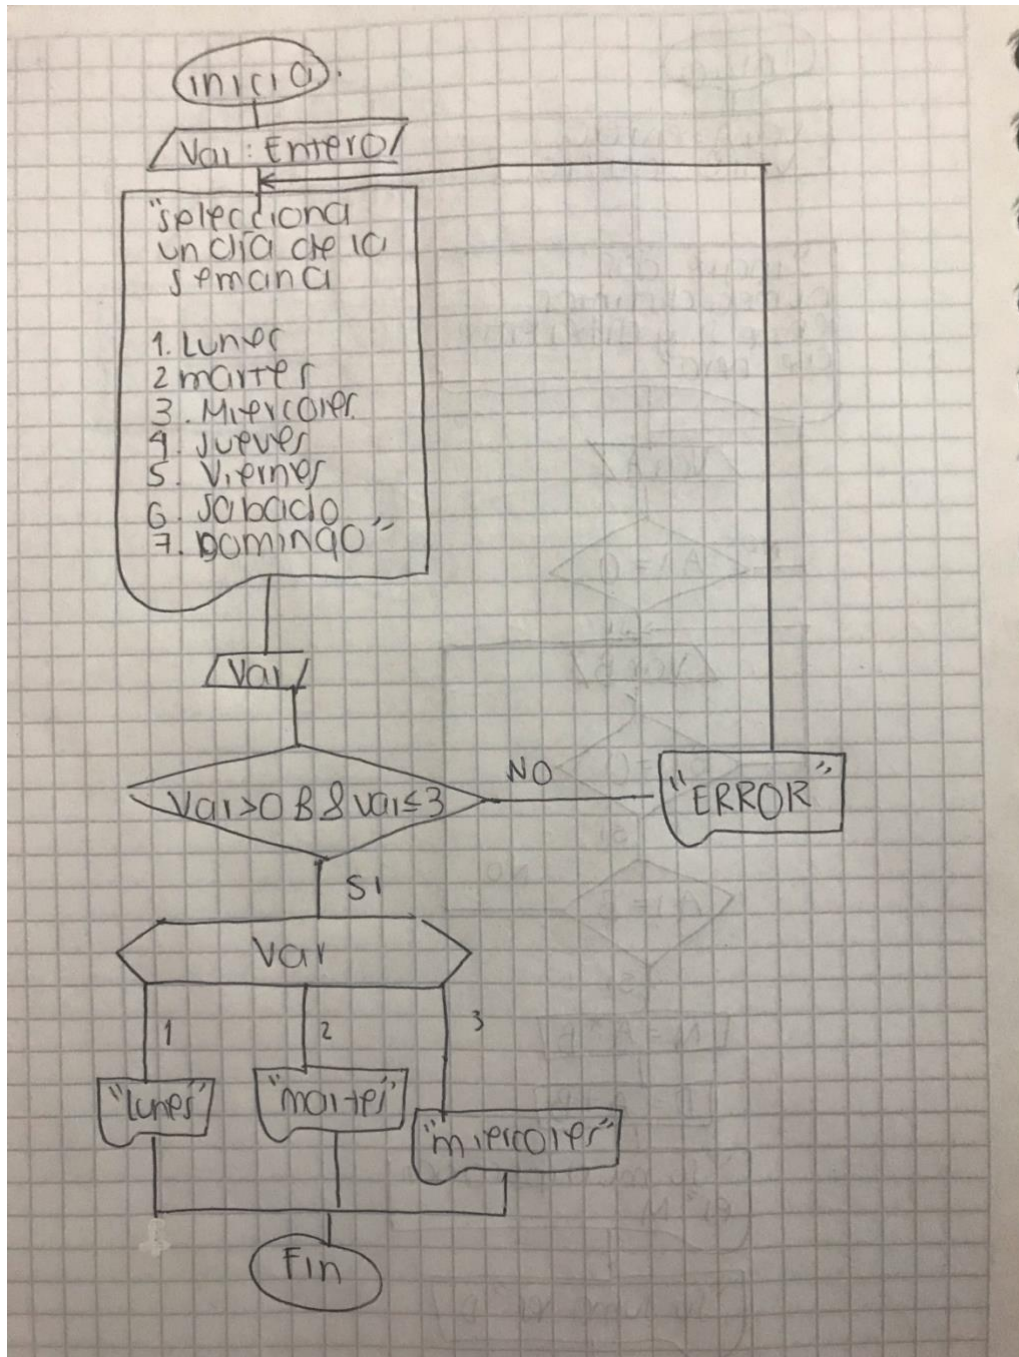 inicia.
Var: Entero
"selecciona
un día de la
semana
1. Lunes
2 martes
3. Miercoles
4. Jueves
5. Viernes
6. Sabado
7. Domingo"
Var
Var>0 && var≤3
NO
"ERROR"
SI
Var
1
2
3
"lunes"
"martes"
"miercoles"
Fin